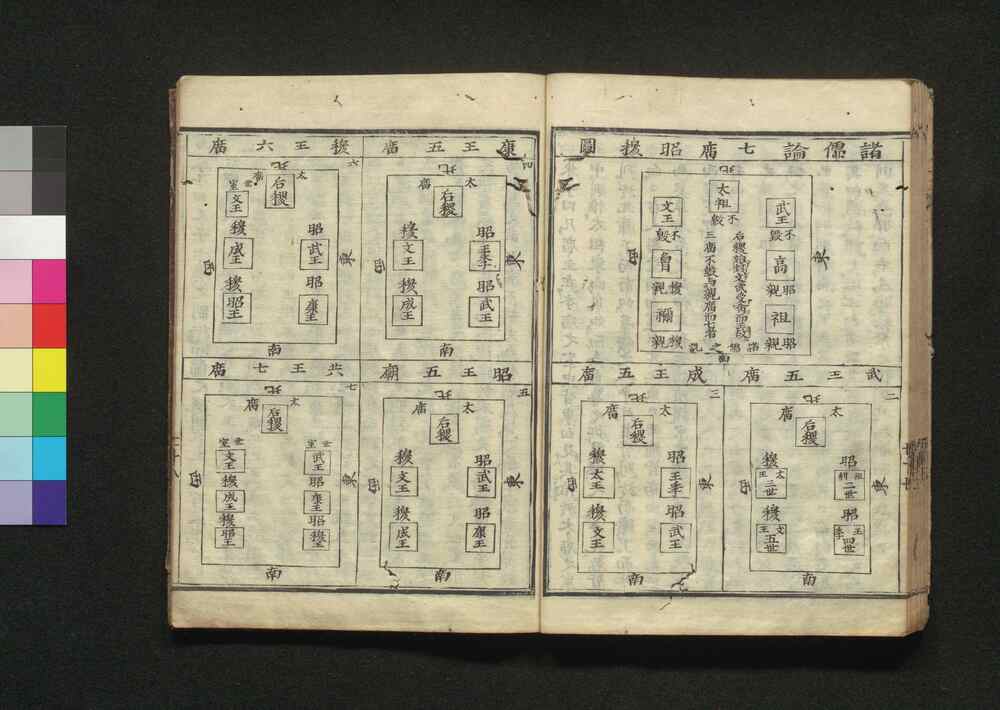 諸儒論七庿昭穆圖
北
太祖
不毀
武王
不毀
高
昭親
祖
昭親
東
文王
不毀
曾
穆親
禰
穆親
西
后稷始封文武受命而王故
三庿不毀與親庿而七者
諸儒之說
南
武王五庿
二
北
太庿
后稷
昭
二世
昭
王季
四世
東
穆
三世
穆
文王
五世
西
南
成王五庿
三
北
太庿
后稷
昭
王季
昭
武王
東
穆
太王
穆
文王
西
南
康王五庿
四
太庿
后稷
昭
王季
昭
武王
東
穆
文王
穆
成王
西
南
昭王五廟
五
北
太庿
后稷
昭
武王
昭
康王
東
穆
文王
穆
成王
西
南
穆王六庿
六
北
太庿
后稷
昭
武王
昭
康王
東
世室
文王
穆
成王
穆
昭王
西
南
共王七庿
七
北
太庿
后稷
世室
武王
昭
康王
昭
穆王
東
世室
文王
穆
成王
穆
昭王
西
南